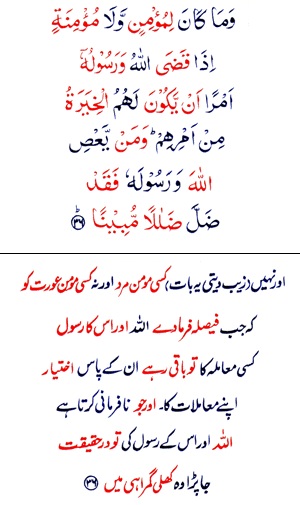 وَمَا كَانَ لِمُؤْمِنٍ وَّلَا مُؤْمِنَةٍ
اِذَا قَضَى اللّٰهُ وَرَسُوْلُهٗۤ
اَمْرًا اَنْ يَّكُوْنَ لَهُمُ الْخِيَرَةُ
مِنْ اَمْرِهِمْ ؕ وَمَنْ يَّعْصِ
اللّٰهَ وَرَسُوْلَهٗ فَقَدْ
ضَلَّ ضَلٰلًا مُّبِيْنًا ؕ۳۶
اور نہیں (زیب دیتی یہ بات) کسی مومن مرد اور نہ کسی مومن عورت کو
کہ جب فیصلہ فرمادے اللہ اور اس کا رسول
کسی معاملہ کا تو باقی رہے ان کے پاس اختیار
اپنے معاملات کا۔ اور جو نافرمانی کرتا ہے
اللہ اور اس کے رسول کی تو درحقیقت
جا پڑا وہ کھلی گمراہی میں ۳۶